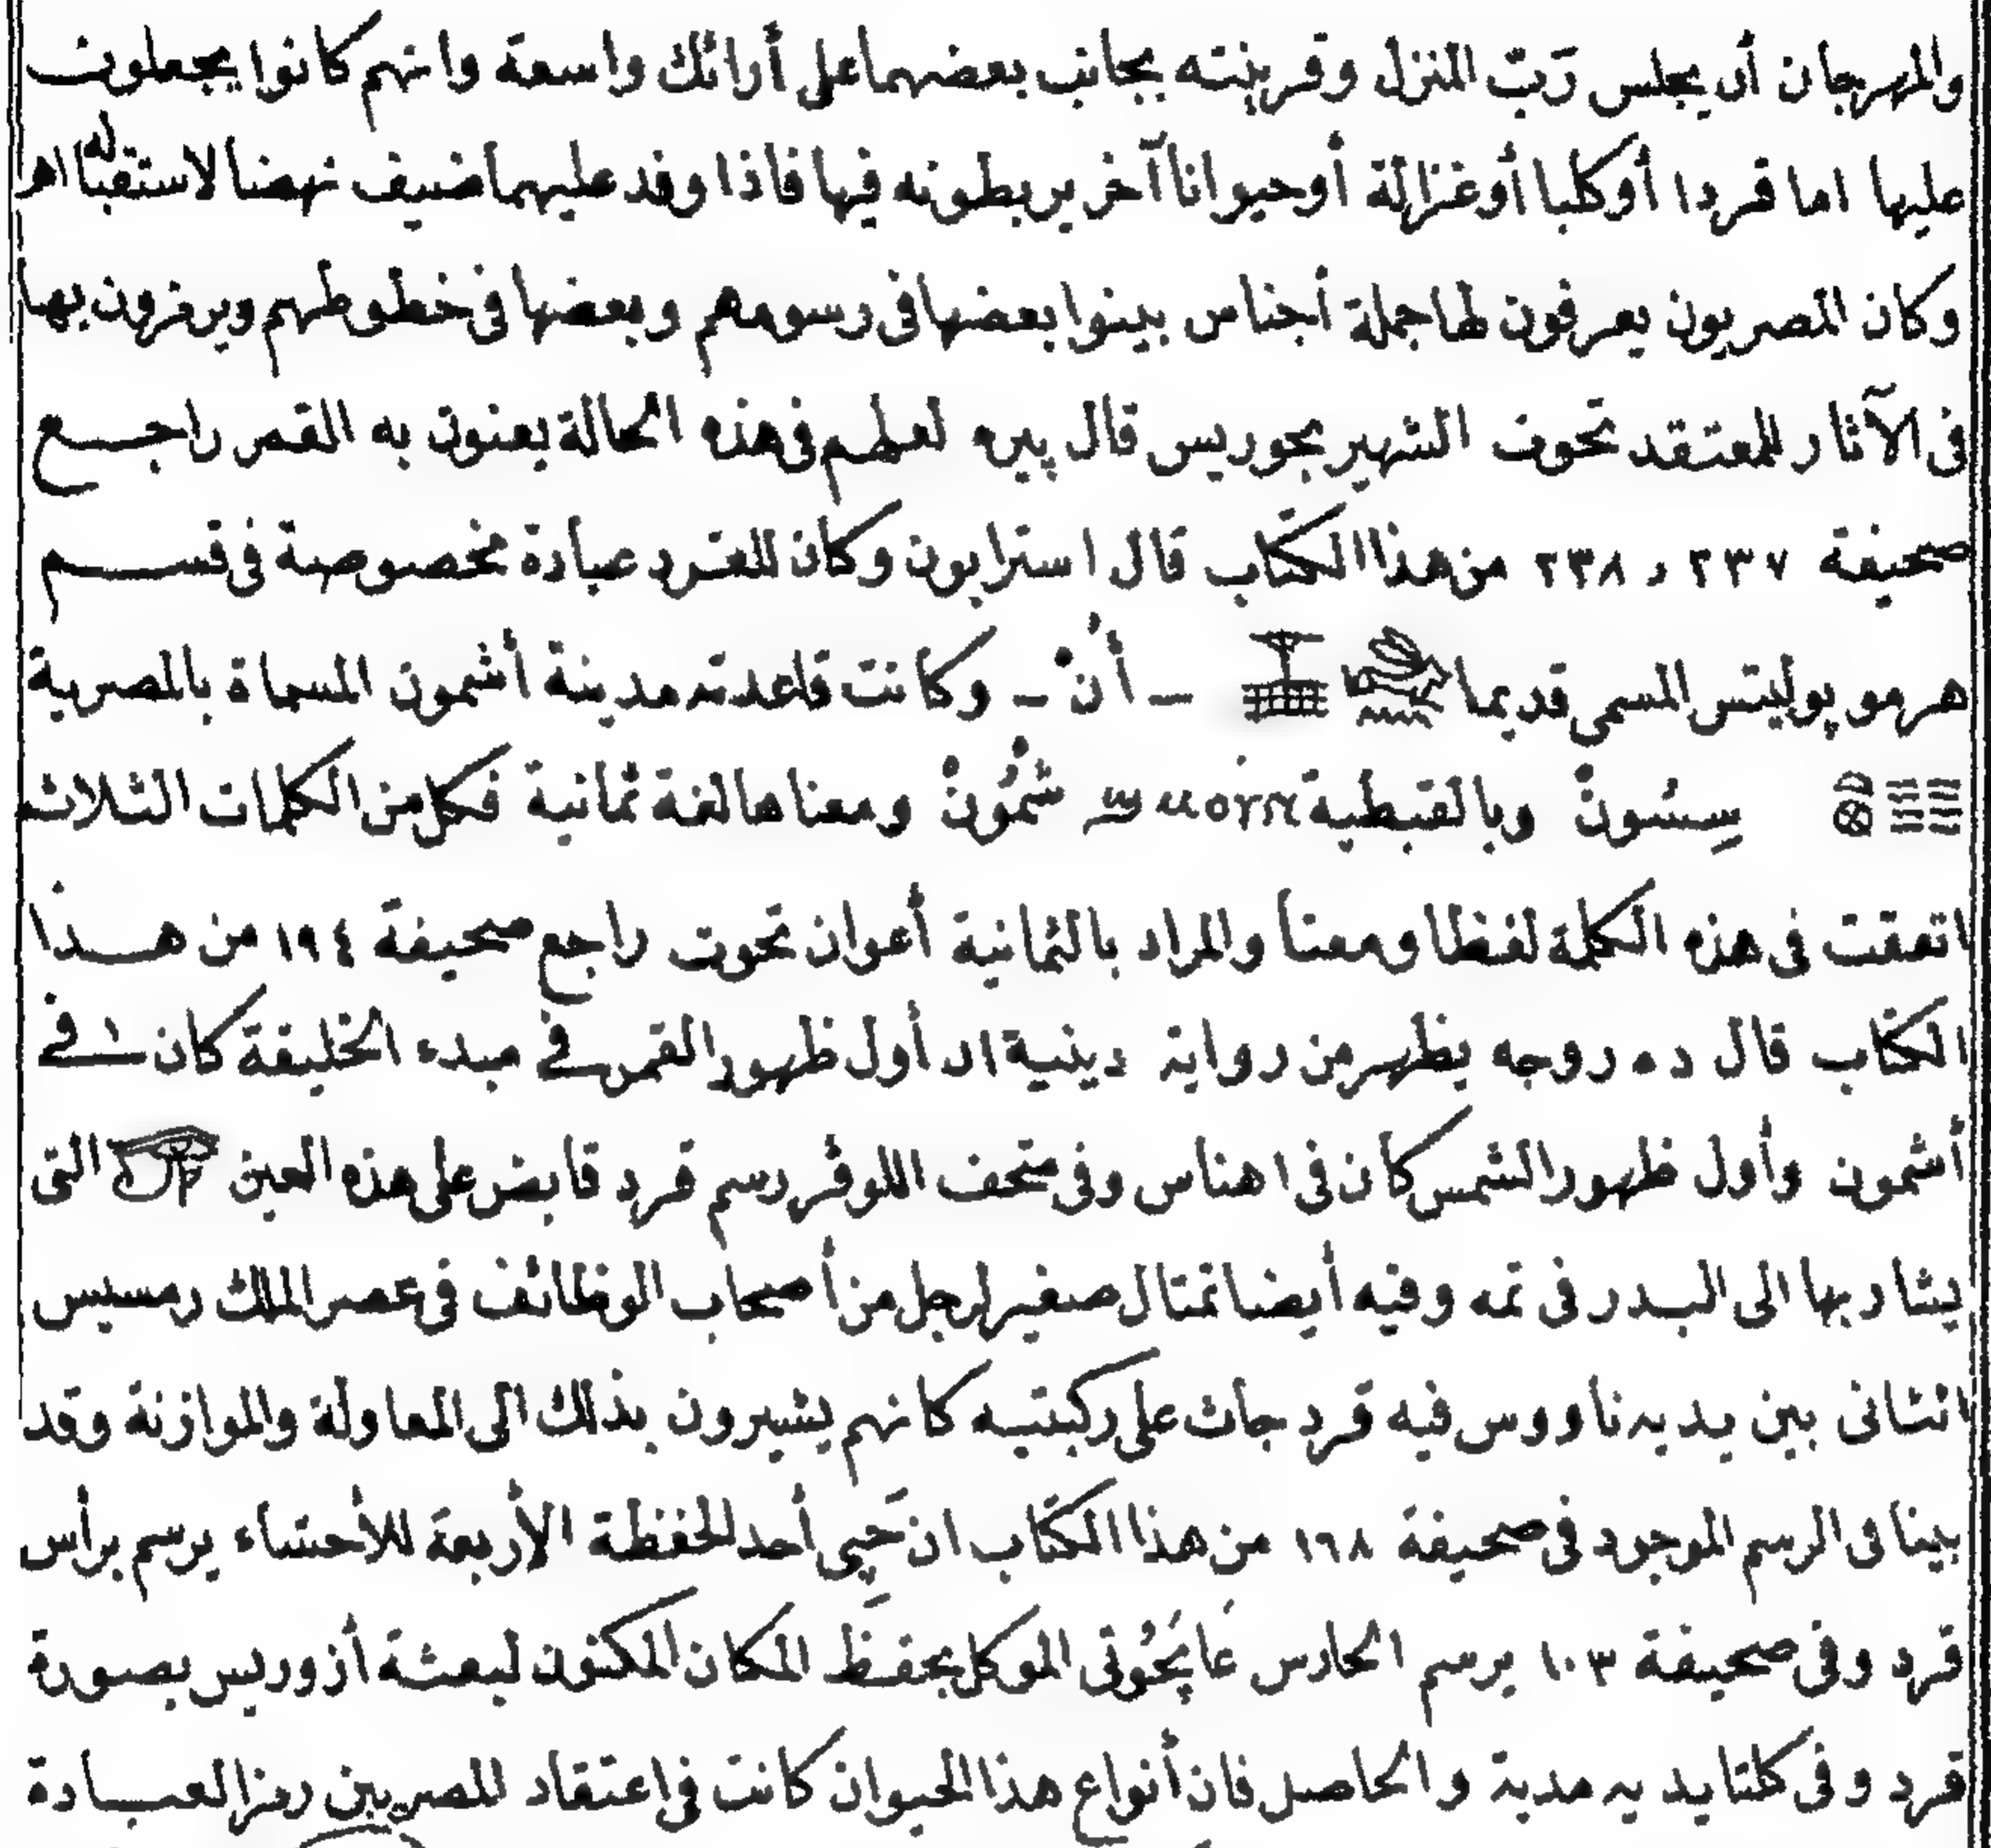 والمهرجان أن يجلس رَبّ المنزل وقرينته بجانب بعضهما على أرائك واسعة وانهم كانوا يجعلون
عليها اما قردا أوكلبا أوغزالة أوحيوانا آخر يربطونه فيها فاذا وفد عليهما ضيف نهضا لاستقباله اهـ
وكان المصريون يعرفون لها جملة أجناس بينوا بعضها فى رسومهم وبعضها فى خطوطهم ويرمزون بها
فى الآثار للمعتقد تحوت الشهير بجوريس قال پيره لعلهم فى هذه الحالة يعنون به القمر راجع
صحيفة ٢٣٧ و ٢٣٨ من هذا الكتاب قال استرابون وكان للقرد عبادة مخصوصة فى قسم
هرموپوليتس المسمى قديما ـ أُنْ ـ وكانت قاعدته مدينة أشمون المسماة بالمصرية
سِسُونْ وبالقبطية ϣⲙⲟⲩⲛ شمُونْ ومعناها لغة ثمانية فكل من الكلمات الثلاثة
اتفقت فى هذه الكلمة لفظا ومعنا والمراد بالثمانية أعوان تحوت راجع صحيفة ١٩٤ من هذا
الكتاب قال ده روجه يظهر من رواية دينية ان أول ظهور القمر فى مبدء الخليقة كان فى
أشمون وأول ظهور الشمس كان فى اهناس وفى متحف اللوڤر رسم قرد قابض على هذه العين التى
يشار بها الى البدر فى تمه وفيه أيضا تمثال صغير لرجل من أصحاب الوظائف فى عصر الملك رمسيس
الثانى بين يديه ناووس فيه قرد جاث على ركبتيه كانهم يشيرون بذلك الى المعاولة والموازنة وقد
بينا فى الرسم الموجود فى صحيفة ١٦٨ من هذا الكتاب ان حَپِى أحد الحفظة الأربعة للأحشاء يرسم برأس
قرد وفى صحيفة ١٠٣ يرسم الحارس الموكل بحفظ المكان المكنون لبعثة أزوريس بصورة
قرد وفى كلتا يديه مدية والحاصل فان أنواع هذا الحيوان كانت فى اعتقاد المصريين رمزا لعبادة